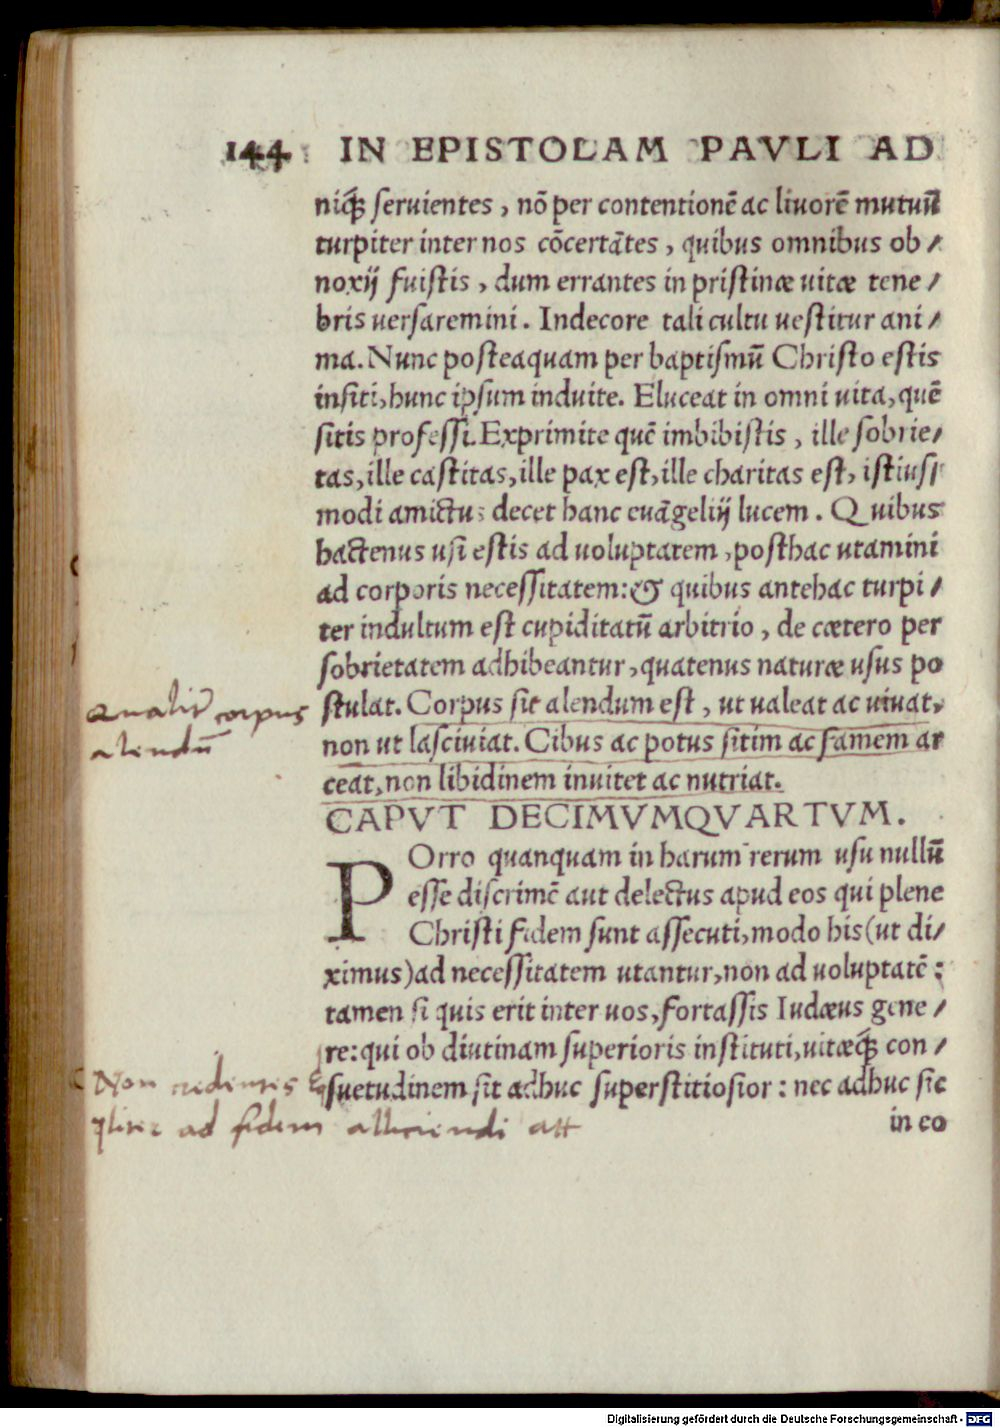 144 IN EPISTOLAM PAVLI AD
niqꝫ seruientes, nō per contentionē ac liuorē mutuū
turpiter inter nos cōcertātes, quibus omnibus ob/
noxij fuistis, dum errantes in pristinæ uitæ tene/
bris uersaremini. Indecore tali cultu uestitur ani/
ma. Nunc posteaquam per baptismū Christo estis
insiti, hunc ipsum induite. Eluceat in omni uita, quē
sitis professi. Exprimite quē imbibistis, ille sobrie/
tas, ille castitas, ille pax est, ille charitas est, istius/
modi amictus decet hanc euāgelij lucem. Quibus
hactenus usi estis ad uoluptatem, posthac utamini
ad corporis necessitatem: & quibus antehac turpi/
ter indultum est cupiditatū arbitrio, de cætero per
sobrietatem adhibeantur, quatenus naturæ usus po
stulat. Corpus sit alendum est, ut ualeat ac uiuat,
non ut lasciuiat. Cibus ac potus sitim ac famem ar
ceat, non libidinem inuitet ac nutriat.
Qualiṫ corpus
alendū
CAPVT DECIMVMQVARTVM.
POrro quanquam in harum rerum usu nullū
esse discrimē aut delectus apud eos qui plene
Christi fidem sunt assecuti, modo his (ut di/
ximus) ad necessitatem utantur, non ad uoluptatē:
tamen si quis erit inter uos, fortassis Iudæus gene/
re: qui ob diutinam superioris instituti, uitæqꝫ con/
suetudinem sit adhuc superstitiosior: nec adhuc sic
in eo
Non credentes
qliter ad fidem alliciendi
Digitalisierung gefördert durch die Deutsche Forschungsgemeinschaft - DFG